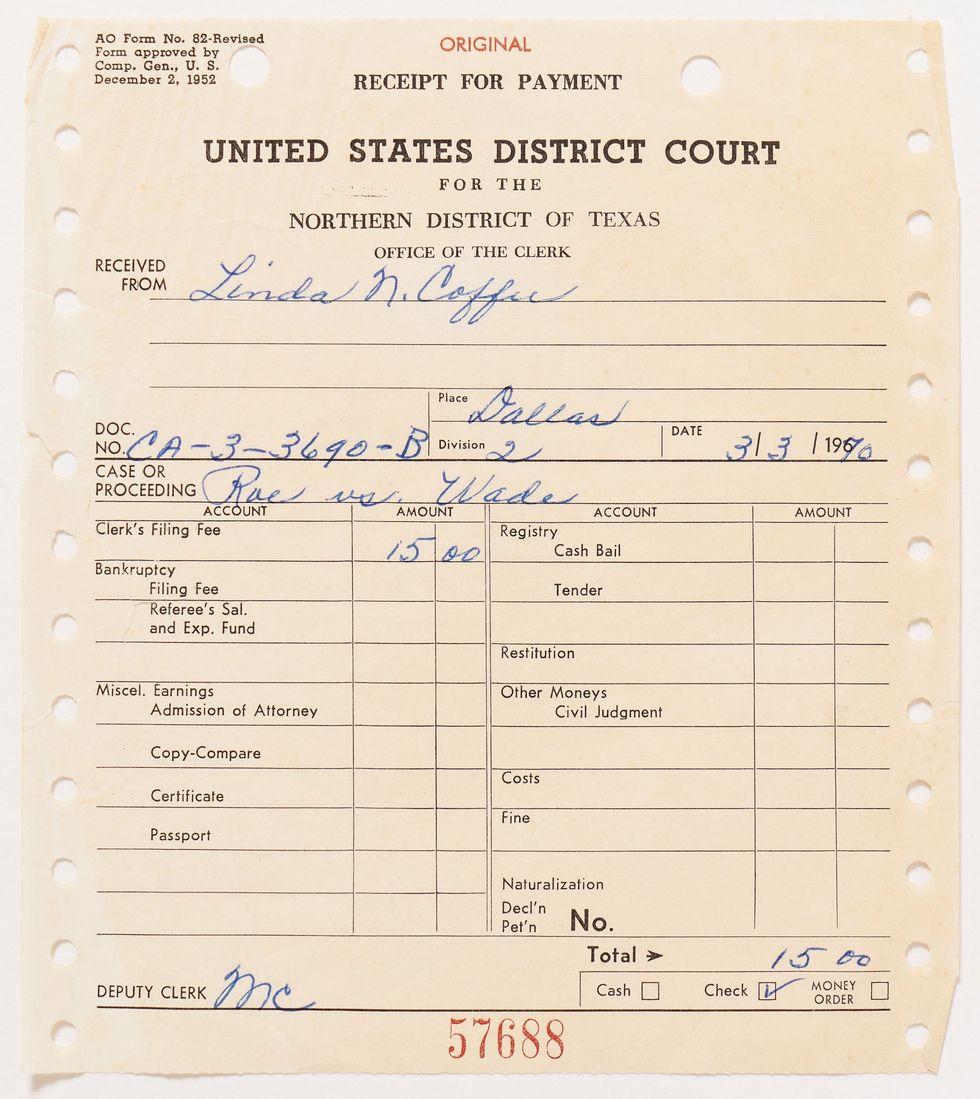 AO Form No. 82-Revised
Form approved by
Comp. Gen., U. S.
December 2, 1952
ORIGINAL
RECEIPT FOR PAYMENT
UNITED STATES DISTRICT COURT
FOR THE
NORTHERN DISTRICT OF TEXAS
OFFICE OF THE CLERK
RECEIVED
FROM Linda N. Coffee
Place Dallas
DOC.
NO. CA-3-3690-B Division 2 DATE 3/3/1970
CASE OR
PROCEEDING Roe vs. Wade
ACCOUNT AMOUNT ACCOUNT AMOUNT
Clerk's Filing Fee 15 00 Registry
Cash Bail
Bankruptcy
Filing Fee Tender
Referee's Sal.
and Exp. Fund
Restitution
Miscel. Earnings Other Moneys
Admission of Attorney Civil Judgment
Copy-Compare
Costs
Certificate
Fine
Passport
Naturalization
Decl'n
Pet'n No.
Total 15 00
DEPUTY CLERK MC Cash Check MONEY
ORDER
57688